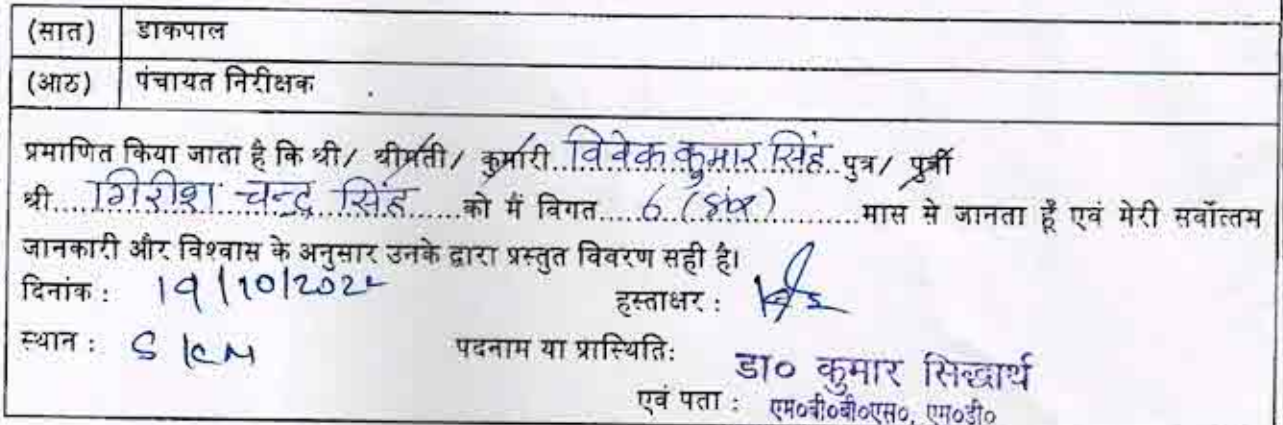 (सात) डाकपाल
(आठ) पंचायत निरीक्षक
प्रमाणित किया जाता है कि श्री/ श्रीमती/ कुमारी..विवेक कुमार सिंह पुत्र/ पुत्री
श्री.....गिरीश चन्द्र सिंह......को मैं विगत....6 (six)............मास से जानता हूँ एवं मेरी सर्वोत्तम
जानकारी और विश्वास के अनुसार उनके द्वारा प्रस्तुत विवरण सही है।
दिनांक : 19/10/202 हस्ताक्षर :
स्थान : पदनाम या प्रास्थिति:
डा० कुमार सिद्धार्थ
एवं पता : एम०बी०बी०एस०, एम०डी०